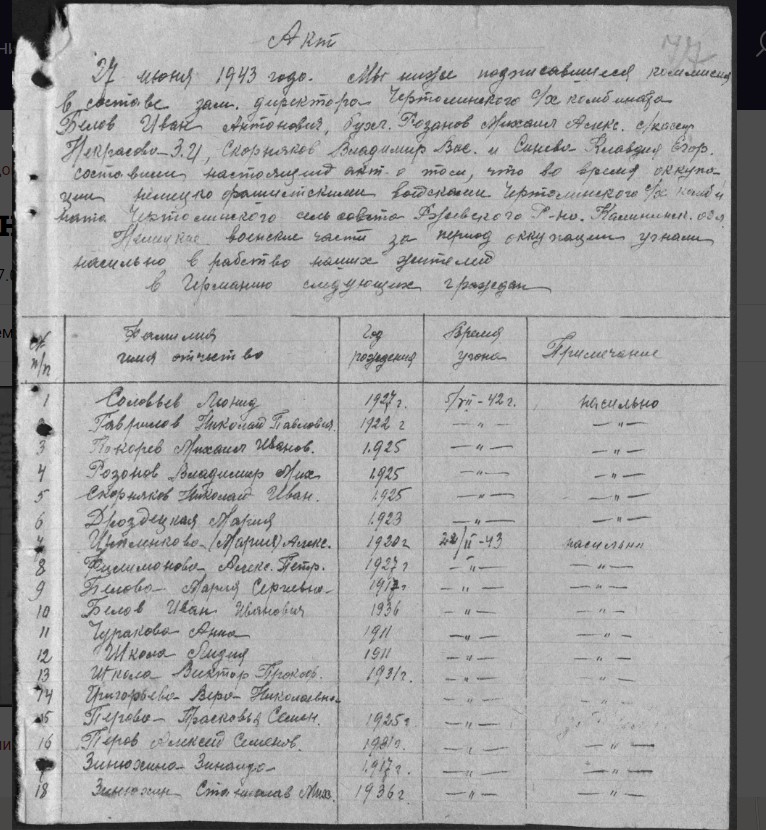 77
Акт
27 июня 1943 года. Мы ниже подписавшиеся комиссия
в составе зам. директора Чертолинского с/х комбината
Белов Иван Антонович, бухг. Розанов Михаил Алекс.
Некрасова З.И, Скорняков Владимир Вас. и Клавдия Егор.
составили настоящий акт о том, что во время оккупа
ции немецко фашистскими войсками Чертолинского с/х комби
ната Чертолинского сельсовета Ржевского Р-на. Калининск. обл.
Немецкие воинские части за период оккупации угнали
насильно в рабство наших жителей
в Германию следующих граждан
№ п/п
Фамилия имя отчество
Год рождения
Время угона
Примечание
1 Соловьев Леонид 1927 г. 5/VII - 42 г. насильно
2 Гаврилов Николай Павлович 1922 г — " — — " —
3 Михаил Иванов. 1925 — " — — " —
4 Розонов Владимир Мих 1925 — " — — " —
5 Скорняков Николай Иван. 1925 — " — — " —
6 Дроздецкая Мария 1923 — " — — " —
7 (Мария) Алекс. 1920 г 22/II - 43 насильно
8 Филимонова Алекс. Петр. 1927 г — " — — " —
9 Белова Мария Сергеевна 1917 г — " — — " —
10 Белов Иван Иванович 1936 — " — — " —
11 Чуракова Анна 1911 — " — — " —
12 Школа Лидия 1911 — " — — " —
13 Школа Виктор Прокоф. 1931 г. — " — — " —
14 Григорьева Вера Николаевна — " — — " —
15 Перова Прасковья Семен. 1925 г — " —
16 Перов Алексей Семенов. 1931 г. — " — — " —
Зинюхина Зинаида 1917 г. — " — — " —
18 Зинюхин Станислав Мих. 1936 г. — " — — " —